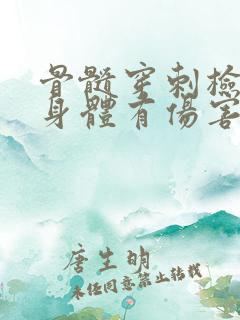 骨髓穿刺檢
身體有傷害
唐生明
未经同意禁止转载